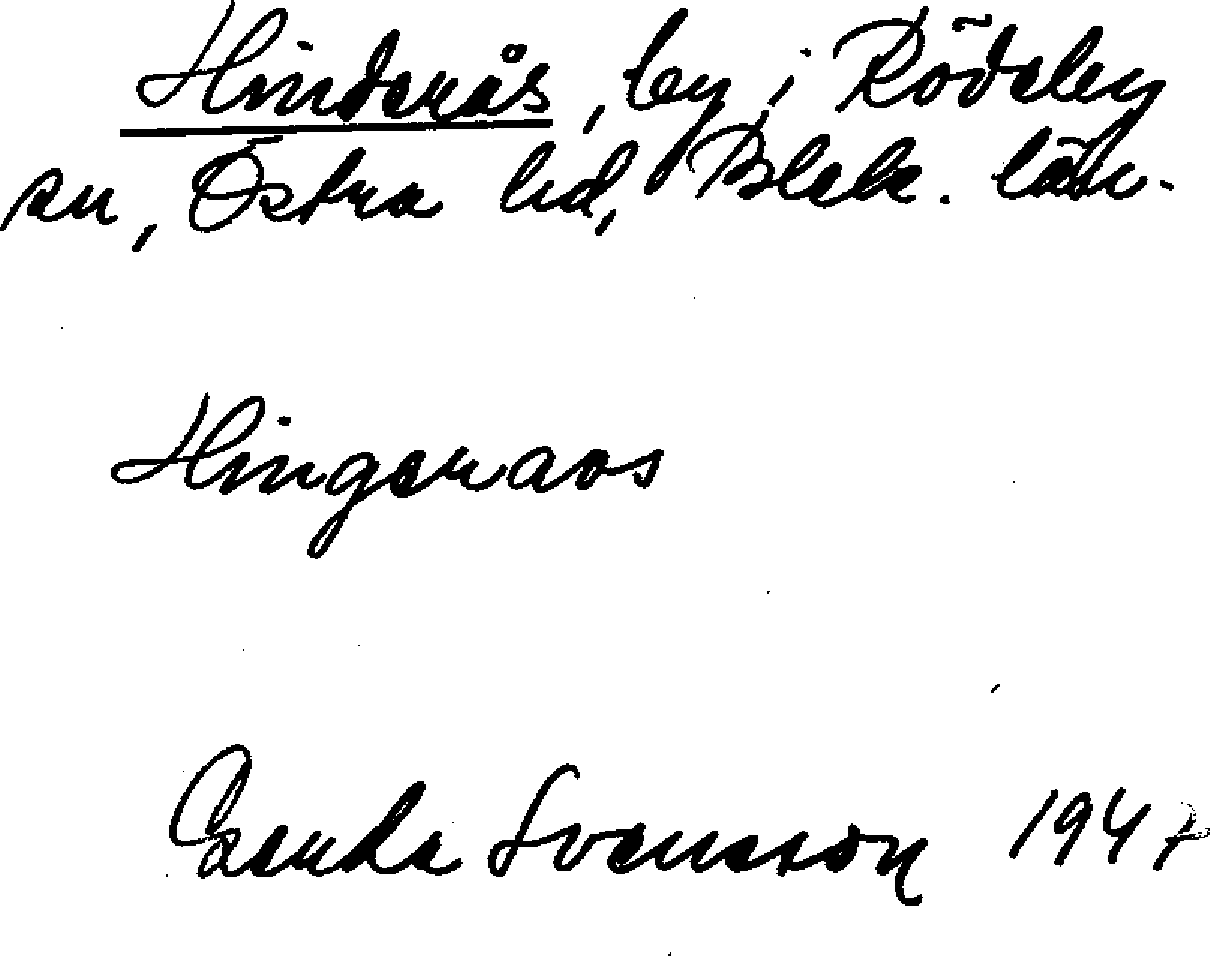 Hinderås, by i Rödeby
sn, Östra hd, Blek. län.
Hingeraos
Gerda Svensson 1947